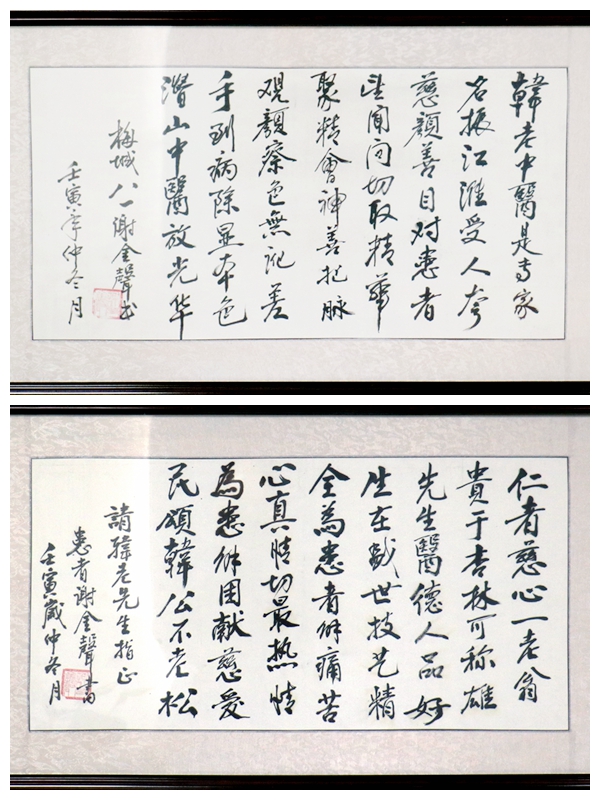 韓老中醫是专家
名振江淮受人夸
慈顔善目对患者
望闻问切取精華
聚精會神善把脉
观顔察色無訛差
手到病除显本色
潛山中醫放光华
梅城八一谢金聲书
壬寅年仲冬月
仁者慈心一老翁
贵于杏林可称雄
先生醫德人品好
生在盛世技艺精
全為患者解痛苦
心真情切最热情
為患解困献慈爱
民頌韓公不老松
請韓老先生指正
患者谢金聲書
壬寅歲仲冬月